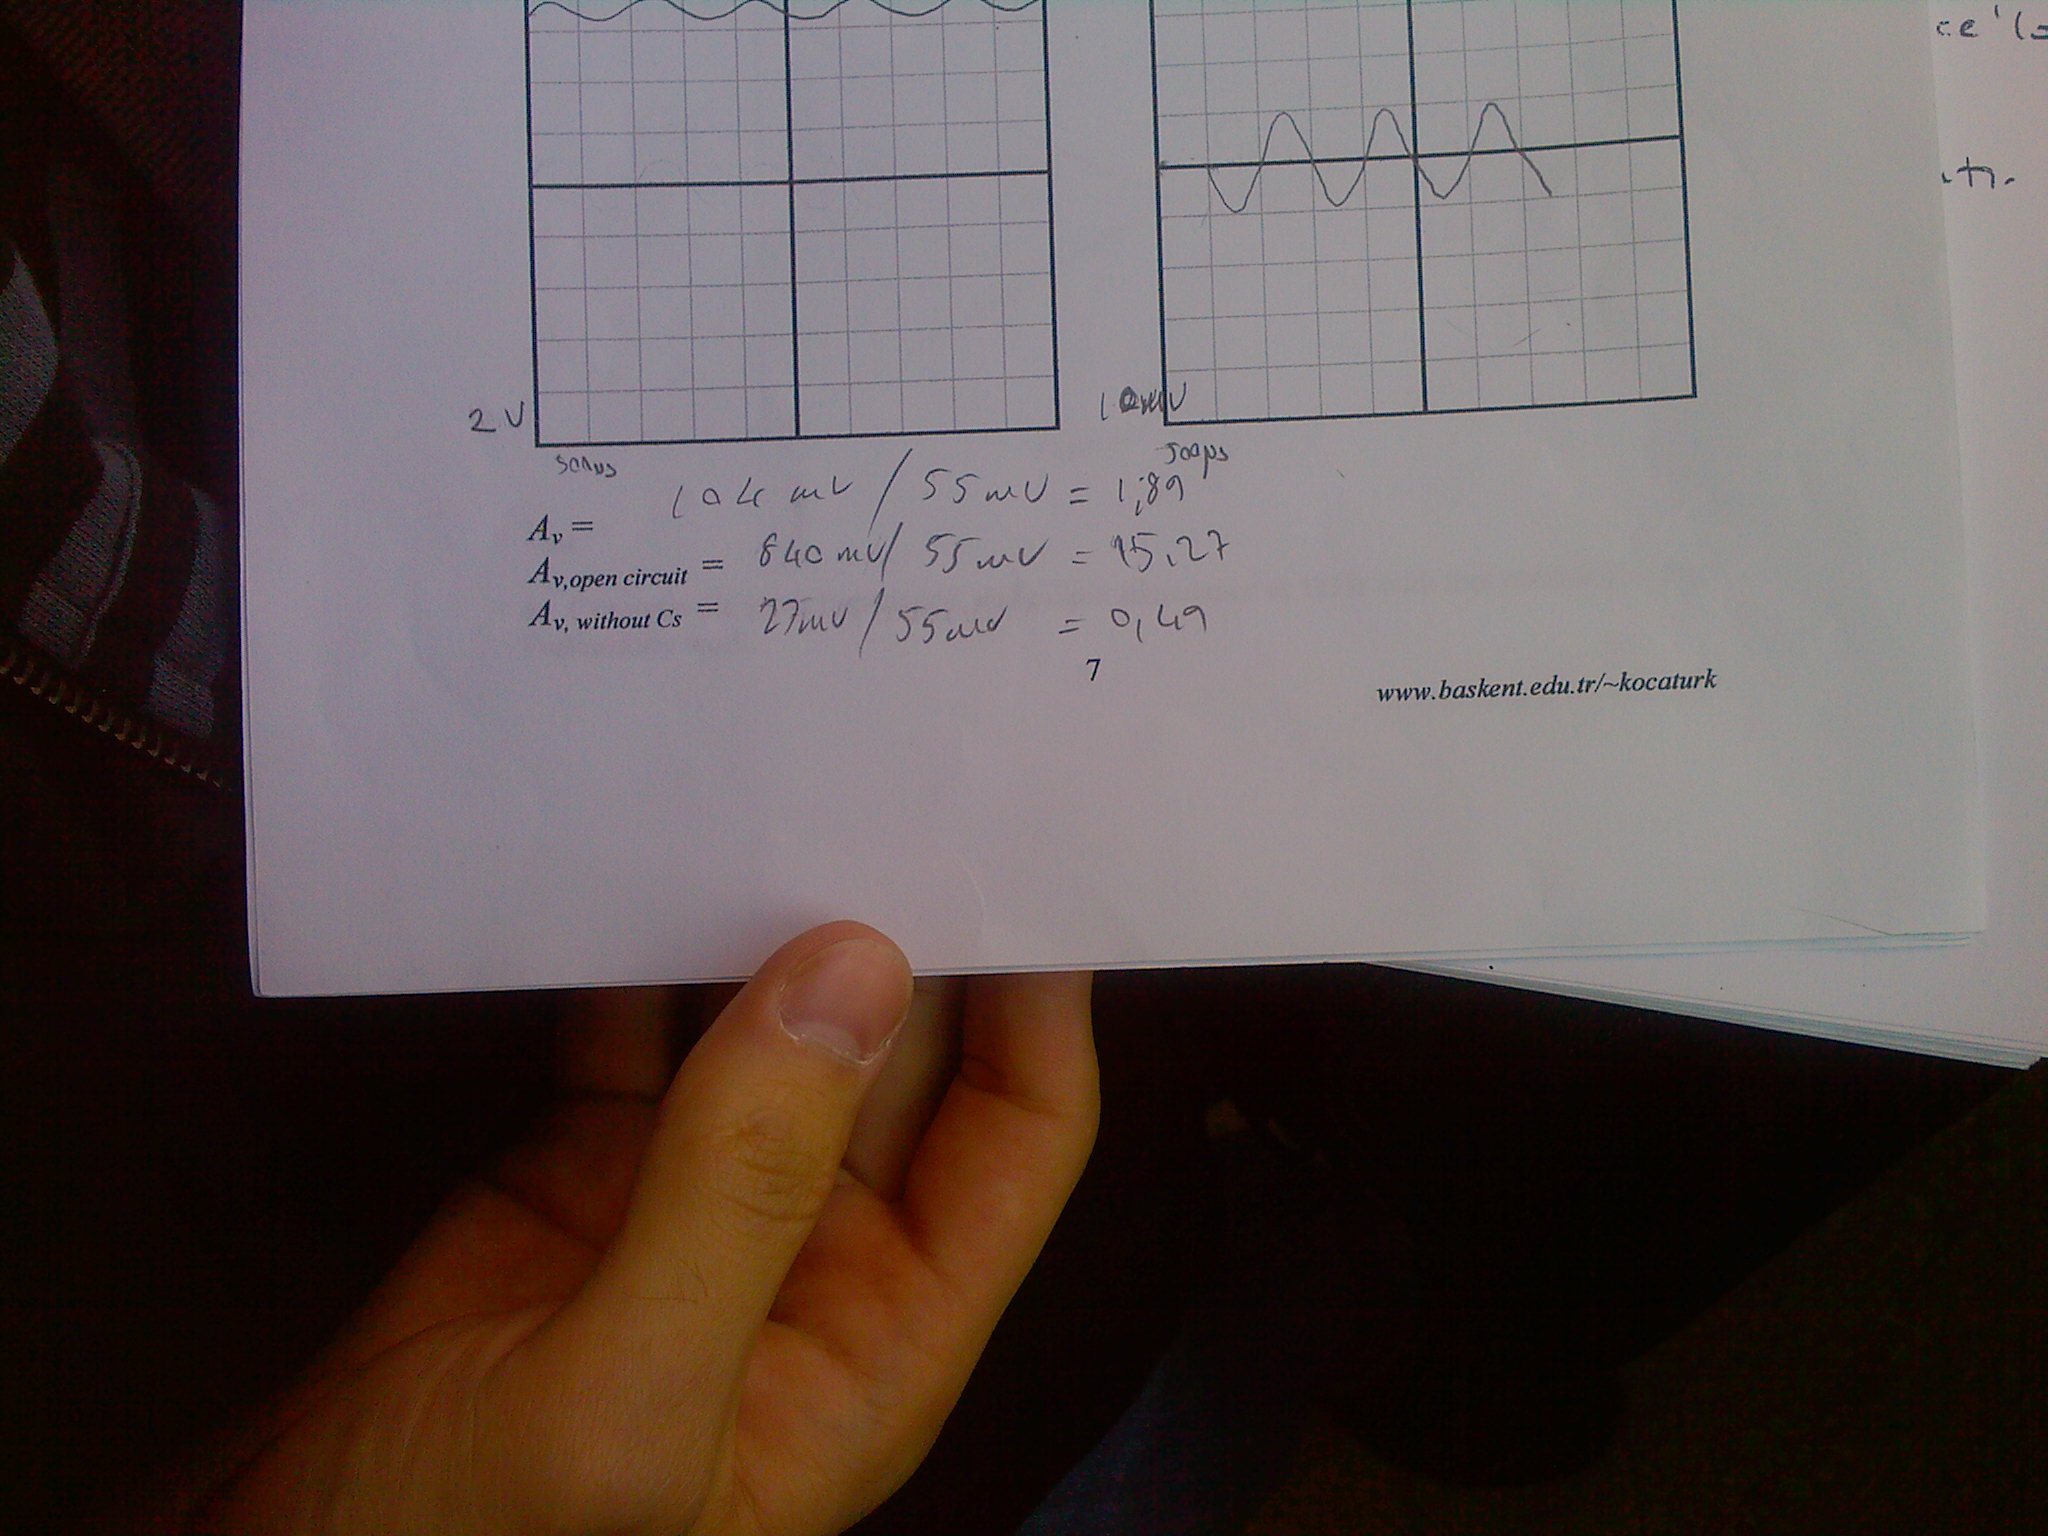 ce'
2V
10mV
500µs
500µs
Av = 104 mV / 55mV = 1,89
Av,open circuit = 840 mV / 55mV = 15,27
Av, without Cs = 27mV / 55mV = 0,49
7
www.baskent.edu.tr/~kocaturk